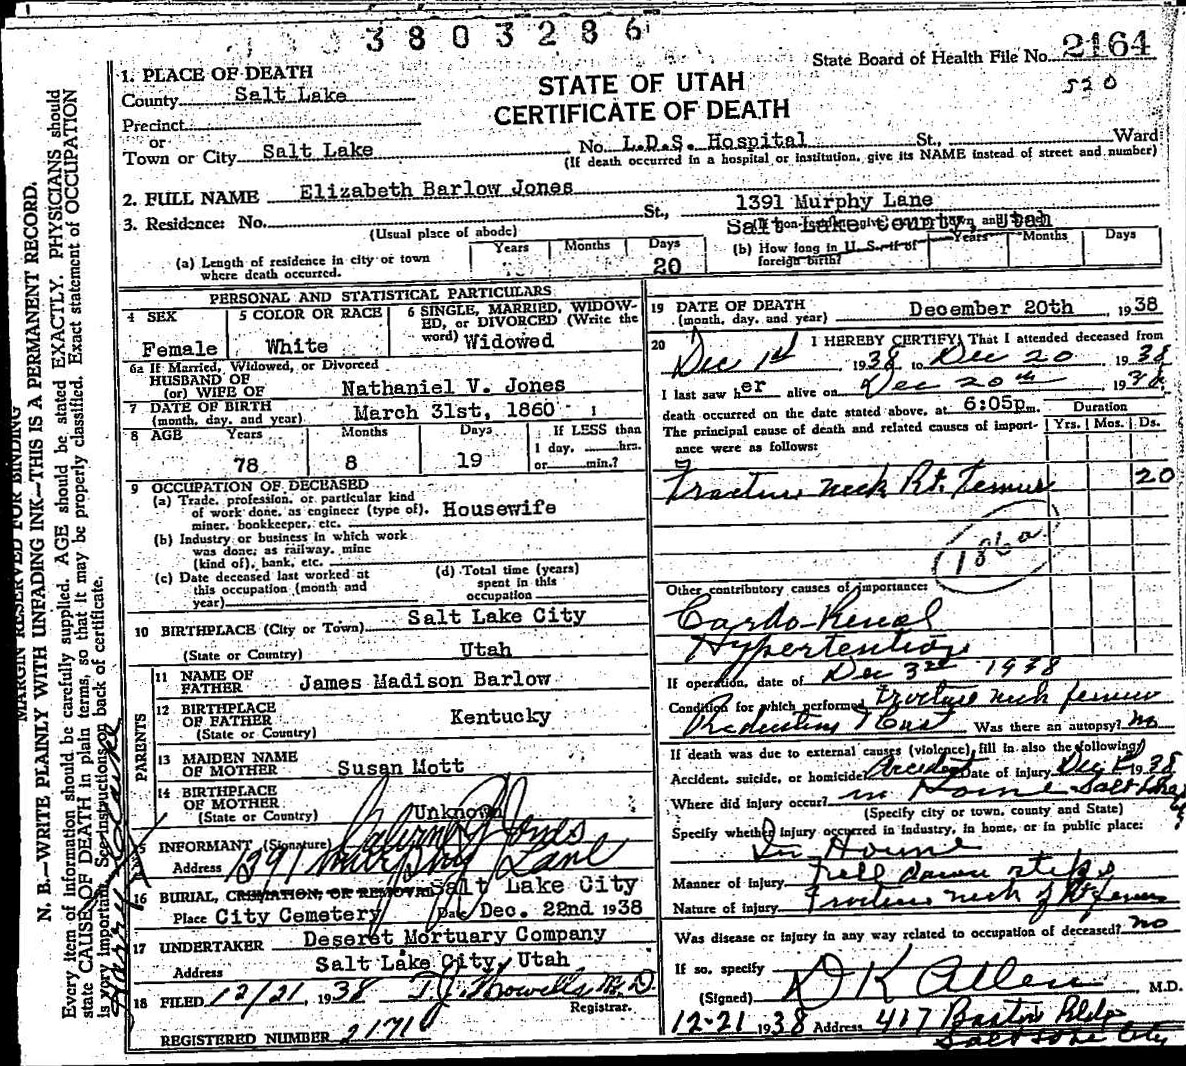 3803286
State Board of Health File No. 2164
520
STATE OF UTAH
CERTIFICATE OF DEATH
1. PLACE OF DEATH
County Salt Lake
Precinct
or
Town or City Salt Lake No. L.D.S. Hospital St., Ward
(If death occurred in a hospital or institution, give its NAME instead of street and number)
2. FULL NAME Elizabeth Barlow Jones
3. Residence: No. St., 1391 Murphy Lane
Salt Lake County, Utah
(Usual place of abode)
(a) Length of residence in city or town where death occurred. Years Months Days 20
(b) How long in U. S. if of foreign birth? Years Months Days
PERSONAL AND STATISTICAL PARTICULARS
4 SEX Female
5 COLOR OR RACE White
6 SINGLE, MARRIED, WIDOWED, or DIVORCED (Write the word) Widowed
6a If Married, Widowed, or Divorced
HUSBAND OF
(or) WIFE OF Nathaniel V. Jones
7 DATE OF BIRTH
(month, day, and year) March 31st, 1860
8 AGE Years 78 Months 8 Days 19 If LESS than 1 day, hrs. or min.?
9 OCCUPATION OF DECEASED
(a) Trade, profession, or particular kind
of work done, as engineer (type of), Housewife
miner, bookkeeper, etc.
(b) Industry or business in which work
was done, as railway, mine
(kind of), bank, etc.
(c) Date deceased last worked at
this occupation (month and
year)
(d) Total time (years)
spent in this
occupation
10 BIRTHPLACE (City or Town) Salt Lake City
(State or Country) Utah
PARENTS
11 NAME OF
FATHER James Madison Barlow
12 BIRTHPLACE
OF FATHER Kentucky
(State or Country)
13 MAIDEN NAME
OF MOTHER Susan Mott
14 BIRTHPLACE
OF MOTHER
(State or Country) Unknown
15 INFORMANT (Signature) Jones
Address 1391 Murphy Lane
16 BURIAL, CREMATION, OR REMOVAL Salt Lake City
Place City Cemetery Date Dec. 22nd 1938
17 UNDERTAKER Deseret Mortuary Company
Address Salt Lake City, Utah
18 FILED 12/21, 1938 T.J. Howells M.D.
Registrar.
REGISTERED NUMBER 2171
19 DATE OF DEATH
(month, day, and year) December 20th, 1938
20 I HEREBY CERTIFY, That I attended deceased from
Dec 1st 1938 to Dec 20, 1938
I last saw her alive on Dec 20th, 1938
death occurred on the date stated above, at 6:05p.m.
The principal cause of death and related causes of importance were as follows:
Duration
Yrs. Mos. Ds.
Fracture neck Rt. Femur 20
186a
Other contributory causes of importance:
Cardo-Renal
Hypertention
If operation, date of Dec 3rd 1938
Condition for which performed fracture neck femur
Reduction & Cast Was there an autopsy? no
If death was due to external causes (violence), fill in also the following:
Accident, suicide, or homicide Accident Date of injury Dec 1 1938
Where did injury occur? in Home Salt Lake
(Specify city or town, county and State)
Specify whether injury occurred in industry, in home, or in public place:
In Home
Manner of injury Fell down steps
Nature of injury Fracture neck of Rt femur
Was disease or injury in any way related to occupation of deceased? no
If so, specify
(Signed) D K Allen, M.D.
12-21 1938 Address 417 Bldg
Salt Lake City
MARGIN RESERVED FOR BINDING
N. B.—WRITE PLAINLY WITH UNFADING INK—THIS IS A PERMANENT RECORD.
Every item of information should be carefully supplied. AGE should be stated EXACTLY. PHYSICIANS should
state CAUSE OF DEATH in plain terms, so that it may be properly classified. Exact statement of OCCUPATION
is very important. See instructions on back of certificate.